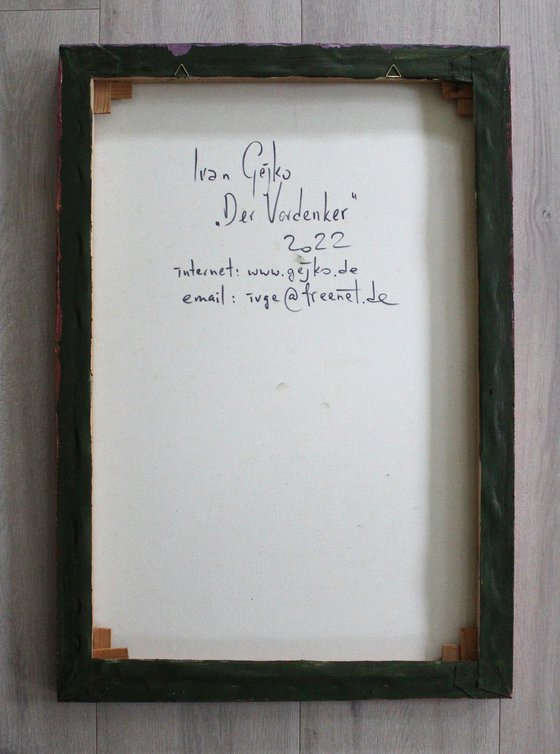 Ivan Gejko
„Der Vordenker“
2022
internet: www.gejko.de
email: ivge@freenet.de